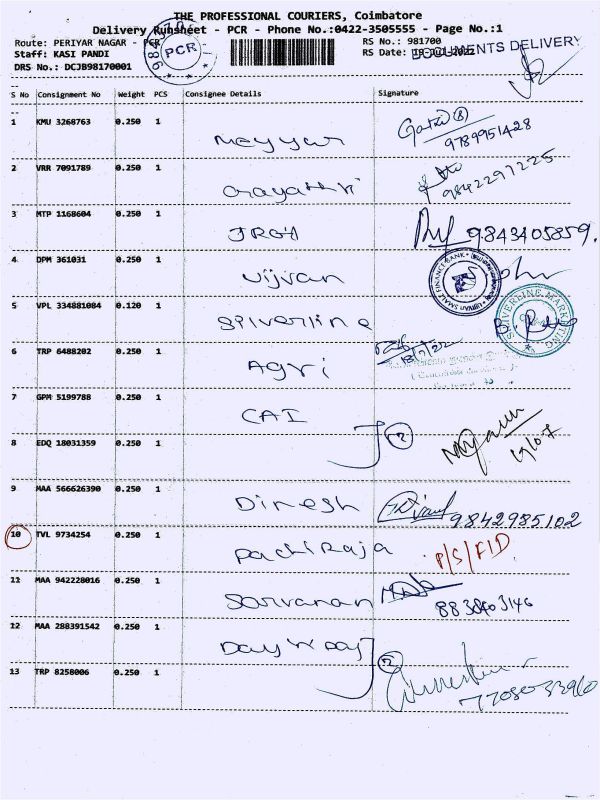 THE PROFESSIONAL COURIERS, Coimbatore
Delivery Runsheet - PCR - Phone No.:0422-3505555 - Page No.:1
Route: PERIYAR NAGAR - PCR
RS No.: 981700
Staff: KASI PANDI
RS Date:
DOCUMENTS DELIVERY
DRS No.: DCJB98170001
PCR
S No Consignment No Weight PCS Consignee Details Signature
1 KMU 3268763 0.250 1 Meyyar
9789951428
2 VRR 7091789 0.250 1 Gayathri
9842297225
3 MTP 1168604 0.250 1 JRGY
9843405859.
4 DPM 361031 0.250 1 Ujjvan
UJJIVAN SMALL FINANCE BANK
5 VPL 334881084 0.120 1 Silverline
SILVERLINE MARKETING
6 TRP 6488202 0.250 1 Agri
7 GPM 5199788 0.250 1 CAI
2
8 EDQ 18031359 0.250 1
19/07
9 MAA 566626390 0.250 1 Dinesh
9842985102
10 TVL 9734254 0.250 1 Pachiraja P/S/FID
11 MAA 942228016 0.250 1 Sarvanan
12 MAA 288391542 0.250 1
2
13 TRP 8258006 0.250 1